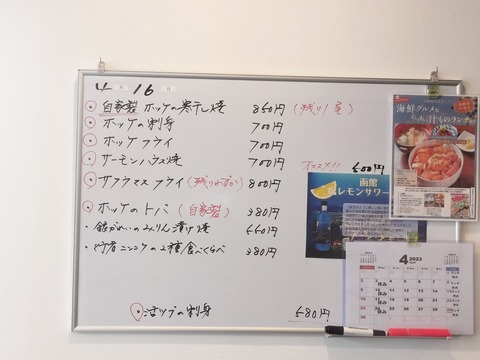 4月16日
自家製 ホッケの寒干し焼 850円 (残り1尾)
ホッケの刺身 700円
ホッケフライ 700円
サーモンハラス焼 700円
サクラマスフライ (残りわずか) 800円
ホッケのトバ (自家製) 380円
銀がれいのみりん漬け焼 550円
行者ニンニクの2種食べくらべ 380円
活ツブの刺身 580円
オススメ!! 500円
函館
塩レモンサワー
海鮮グルメ&
4 2023
休み